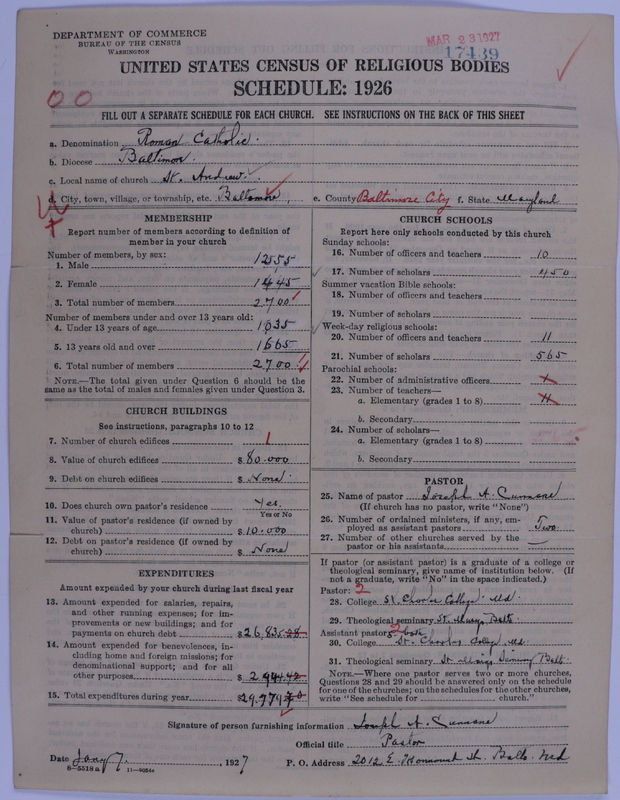 DEPARTMENT OF COMMERCE
BUREAU OF THE CENSUS
WASHINGTON
MAR 23 1927
17439
UNITED STATES CENSUS OF RELIGIOUS BODIES
SCHEDULE: 1926
00
FILL OUT A SEPARATE SCHEDULE FOR EACH CHURCH. SEE INSTRUCTIONS ON THE BACK OF THIS SHEET
a. Denomination Roman Catholic.
b. Diocese Baltimore.
c. Local name of church St. Andrew
d. City, town, village, or township, etc. Baltimore, e. County Baltimore City f. State Maryland
MEMBERSHIP
Report number of members according to definition of
member in your church
Number of members, by sex:
1. Male 1255
2. Female 1445
3. Total number of members 2700
Number of members under and over 13 years old:
4. Under 13 years of age 1035
5. 13 years old and over 1665
6. Total number of members 2700
NOTE.—The total given under Question 6 should be the
same as the total of males and females given under Question 3.
CHURCH BUILDINGS
See instructions, paragraphs 10 to 12
7. Number of church edifices 1
8. Value of church edifices $ 80.000
9. Debt on church edifices $ None
10. Does church own pastor's residence Yes.
Yes or No
11. Value of pastor's residence (if owned by
church) $ 10.000
12. Debt on pastor's residence (if owned by
church) $ None
EXPENDITURES
Amount expended by your church during last fiscal year
13. Amount expended for salaries, repairs,
and other running expenses; for im-
provements or new buildings; and for
payments on church debt $ 26.835.28
14. Amount expended for benevolences, in-
cluding home and foreign missions; for
denominational support; and for all
other purposes $ 2.944.42
15. Total expenditures during year $ 29.779.70
CHURCH SCHOOLS
Report here only schools conducted by this church
Sunday schools:
16. Number of officers and teachers 10
17. Number of scholars 450
Summer vacation Bible schools:
18. Number of officers and teachers
19. Number of scholars
Week-day religious schools:
20. Number of officers and teachers 11
21. Number of scholars 565
Parochial schools:
22. Number of administrative officers
23. Number of teachers—
a. Elementary (grades 1 to 8) 11
b. Secondary
24. Number of scholars—
a. Elementary (grades 1 to 8)
b. Secondary
PASTOR
25. Name of pastor Joseph A. Cunnane
(If church has no pastor, write "None")
26. Number of ordained ministers, if any, em-
ployed as assistant pastors Two
27. Number of other churches served by the
pastor or his assistants
If pastor (or assistant pastor) is a graduate of a college or
theological seminary, give name of institution below. (If
not a graduate, write "No" in the space indicated.)
Pastor: 2
28. College St Charles College. Md.
29. Theological seminary St. Marys Balto.
Assistant pastors 2 both
30. College St. Charles College Md.
31. Theological seminary St. Marys Seminary Balto.
NOTE.—Where one pastor serves two or more churches,
Questions 28 and 29 should be answered only on the schedule
for one of the churches; on the schedules for the other churches,
write "See schedule for church."
Signature of person furnishing information Joseph A. Cunnane
Official title Pastor
Date Jany 7., 1927 P. O. Address 2012 E. Monument St. Balto. Md
8—5518a 11—9264